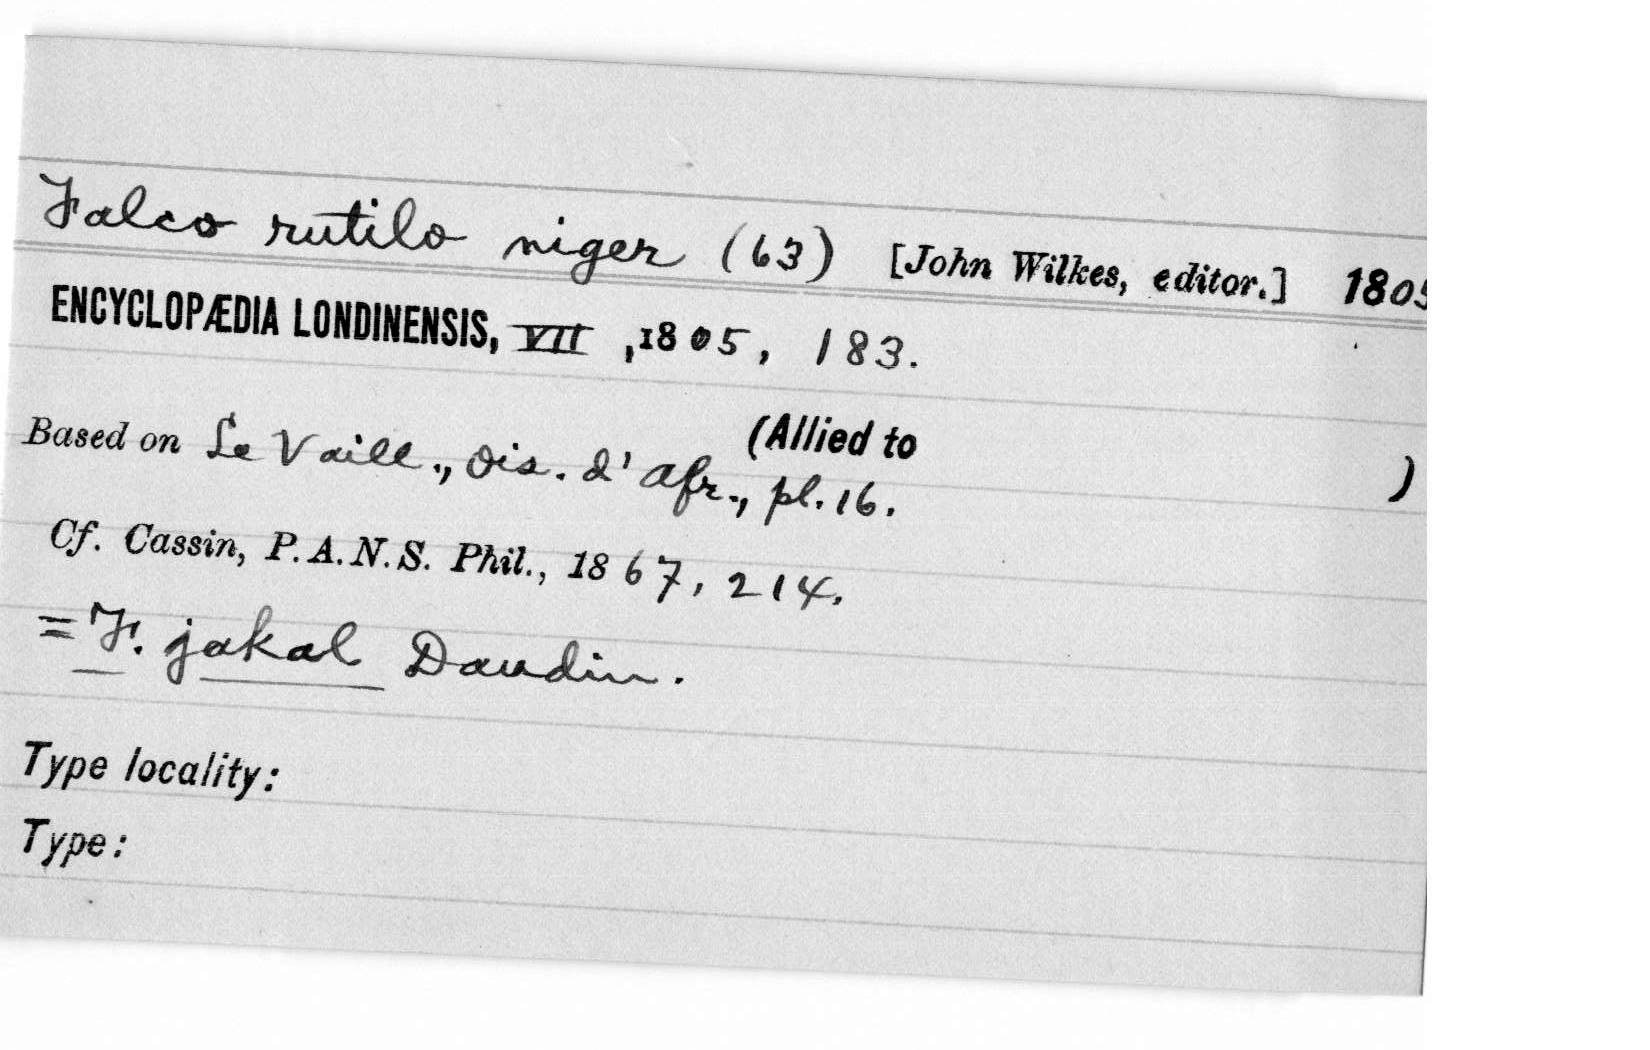 Falco rutilo niger (63) [John Wilkes, editor.] 1805
ENCYCLOPÆDIA LONDINENSIS, VII, 1805, 183.
(Allied to )
Based on Le Vaill., Ois. d'Afr., pl. 16.
Cf. Cassin, P.A.N.S. Phil., 1867, 214.
= F. jakal Daudin.
Type locality:
Type: